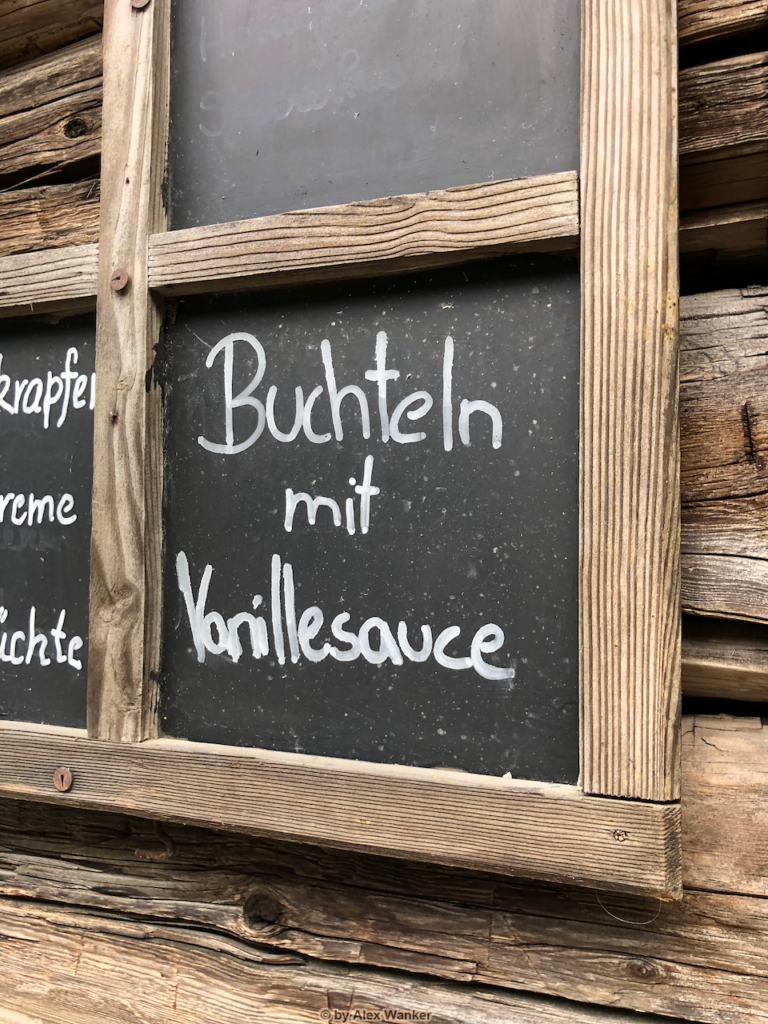 Buchteln
mit
Vanillesauce
krapfen
reme
üchte
© by Alex Wanker